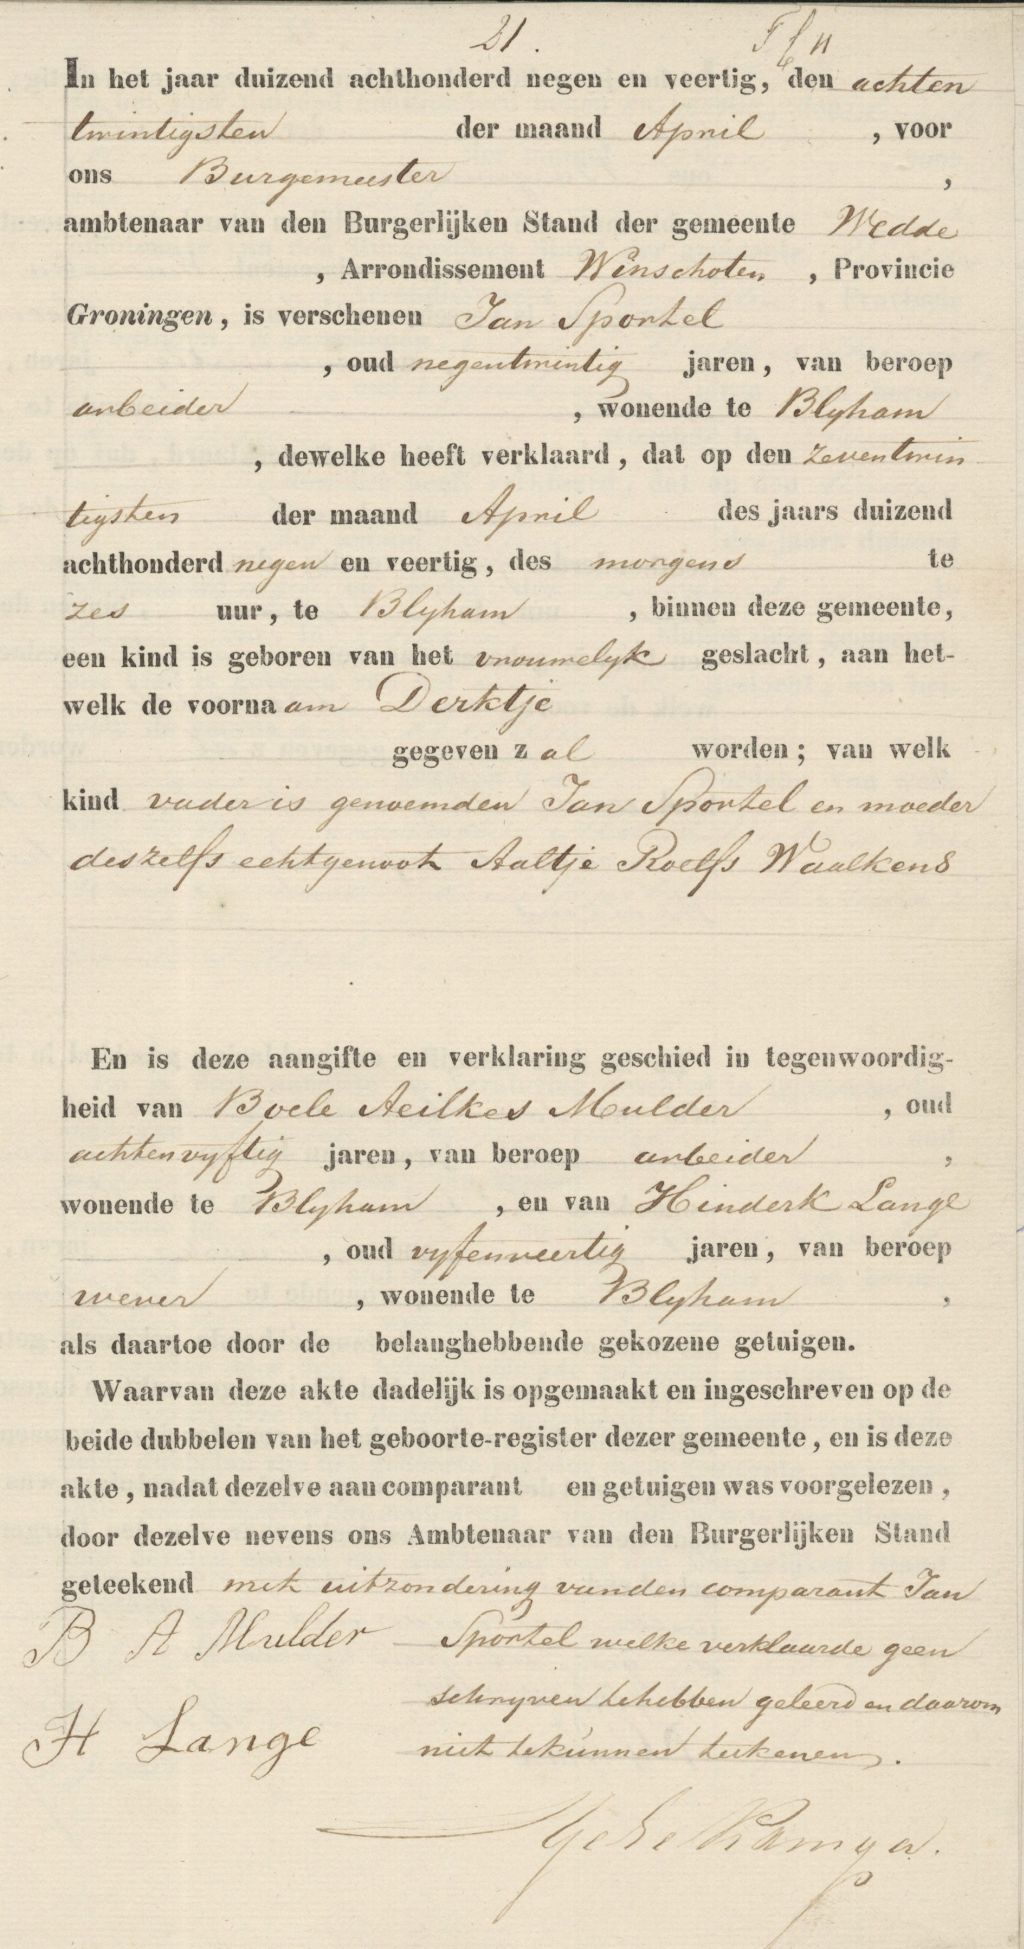 21.
In het jaar duizend achthonderd negen en veertig, den achten
twintigsten der maand April , voor
ons Burgemeester ,
ambtenaar van den Burgerlijken Stand der gemeente Wedde
, Arrondissement Winschoten , Provincie
Groningen, is verschenen Jan Sportel
, oud negentwintig jaren, van beroep
arbeider , wonende te Blyham
, dewelke heeft verklaard, dat op den zeventwin
tigsten der maand April des jaars duizend
achthonderd negen en veertig, des morgens te
zes uur, te Blyham , binnen deze gemeente,
een kind is geboren van het vrouwelyk geslacht, aan het-
welk de voornaam Derktje
gegeven zal worden; van welk
kind vader is genoemden Jan Sportel en moeder
deszelfs echtgenoot Aaltje Roelfs Waalkens
En is deze aangifte en verklaring geschied in tegenwoordig-
heid van Boele Aeilkes Mulder , oud
achtenvyftig jaren, van beroep arbeider ,
wonende te Blyham , en van Hinderk Lange
, oud vyfenveertig jaren, van beroep
wever , wonende te Blyham ,
als daartoe door de belanghebbende gekozene getuigen.
Waarvan deze akte dadelijk is opgemaakt en ingeschreven op de
beide dubbelen van het geboorte-register dezer gemeente, en is deze
akte, nadat dezelve aan comparant en getuigen was voorgelezen,
door dezelve nevens ons Ambtenaar van den Burgerlijken Stand
geteekend met uitzondering vanden comparant Jan
B A Mulder Sportel welke verklaarde geen
schryven tehebben geleerd en daarom
H Lange niet tekunnen teekenen.